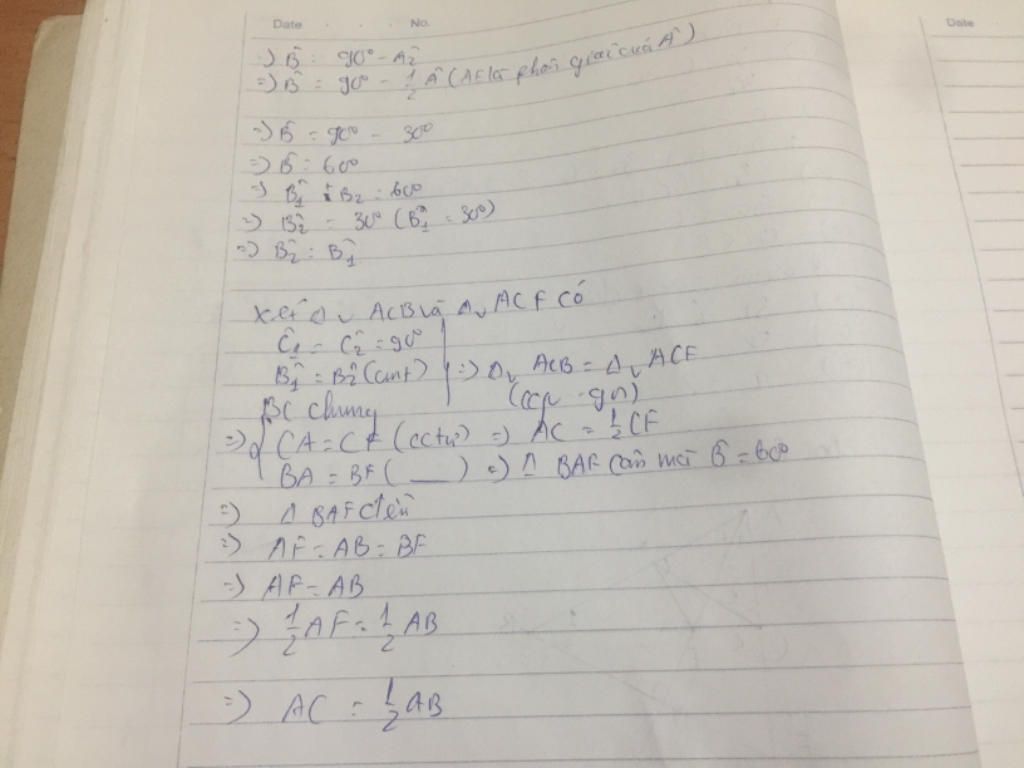 Date No.
Date
=> B̂ = 90° - Â2
=> B̂ = 90° - 1/2 Â (AF là phân giác của Â)
=> B̂ = 90° - 30°
=> B̂ = 60°
=> B̂1 + B̂2 = 60°
=> B̂2 = 30° (B̂1 = 30°)
=> B̂2 = B̂1
Xét Δv ACB và Δv ACF có
Ĉ1 = Ĉ2 = 90°
B̂1 = B̂2 (cmt) => Δv ACB = Δv ACF
BC chung (cgv - gn)
=> CA = CF (cctư) => AC = 1/2 CF
BA = BF ( __ ) => Δ BAF cân mà B̂ = 60°
=> Δ BAF đều
=> AF = AB = BF
=> AF = AB
=> 1/2 AF = 1/2 AB
=> AC = 1/2 AB